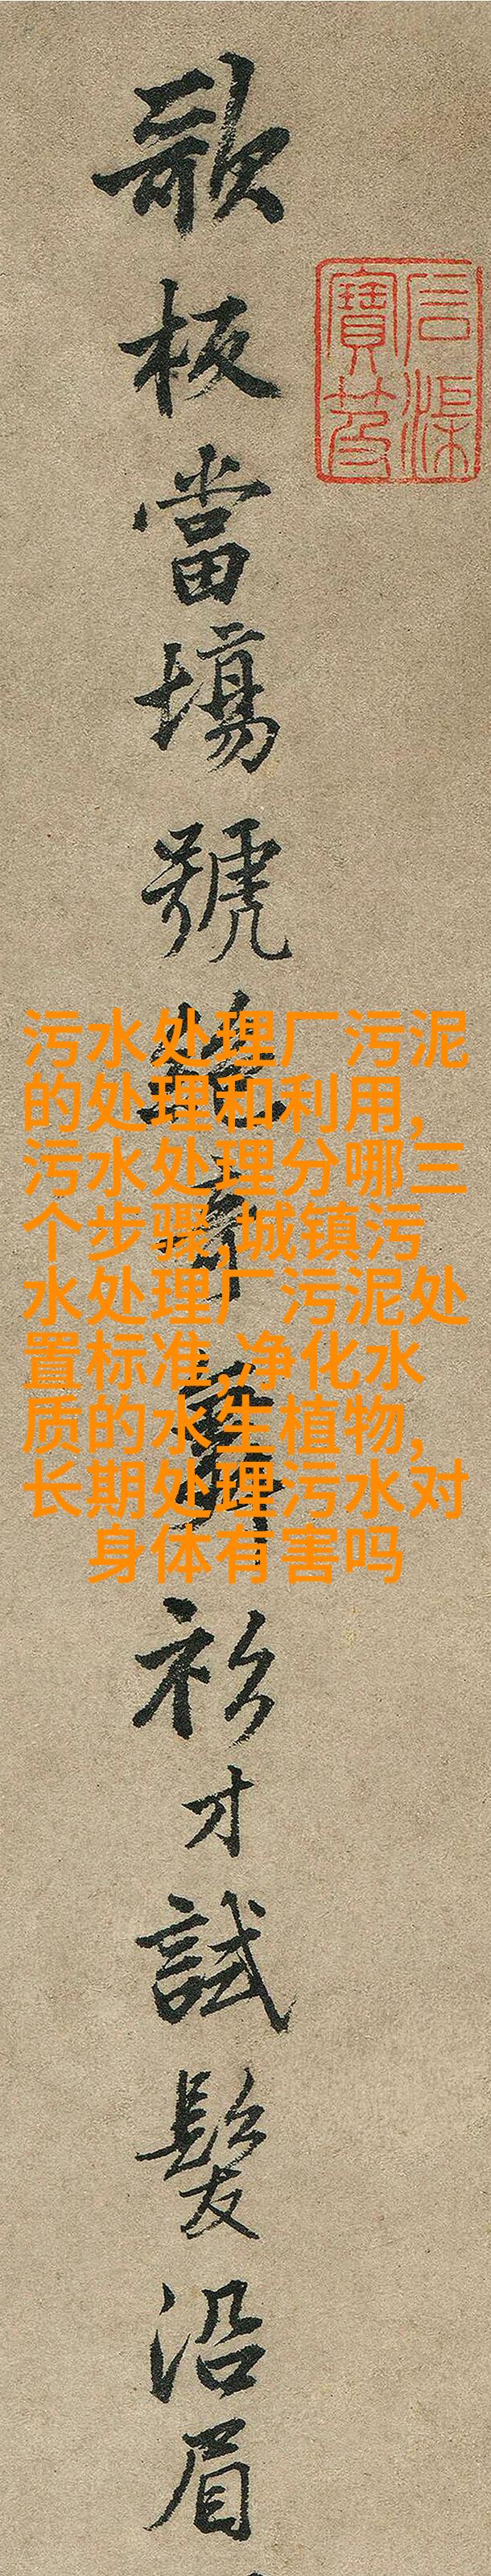 石渠
寶笈
歌板當場號絶奇舞衫才試髮沿眉
污水处理厂污泥
的处理和利用,
污水处理分哪三
个步骤,城镇污
水处理厂污泥处
置标准,净化水
质的水生植物,
长期处理污水对
身体有害吗